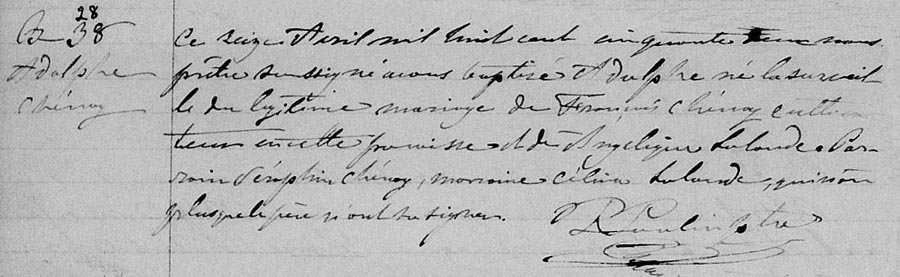 28
B 38
Adolphe
Chénay
Ce seize Avril mil huit cent cinquante deux nous
prêtre soussigné avons baptisé Adolphe né la surveil
le du légitime mariage de François Chénay cultiva
teur en cette paroisse et de Angelique Lalande. Par-
rain Séraphin Chénay, marraine Célina Lalande, qui non
plus que le père n'ont su signer.
Ptre